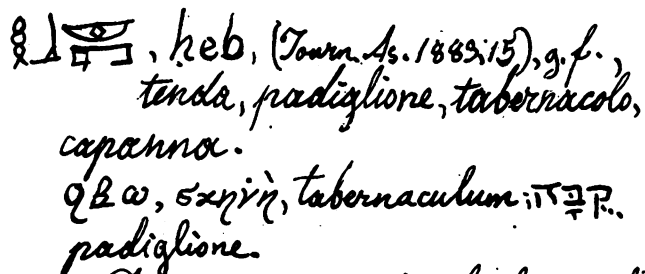 𓎛𓃀𓎱, ḥeb, (Journ. As. 1883; 15), g. f.,
tenda, padiglione, tabernacolo,
capanna.
ϥⲃⲱ, σκηνὴ, tabernaculum; קבה,
padiglione.